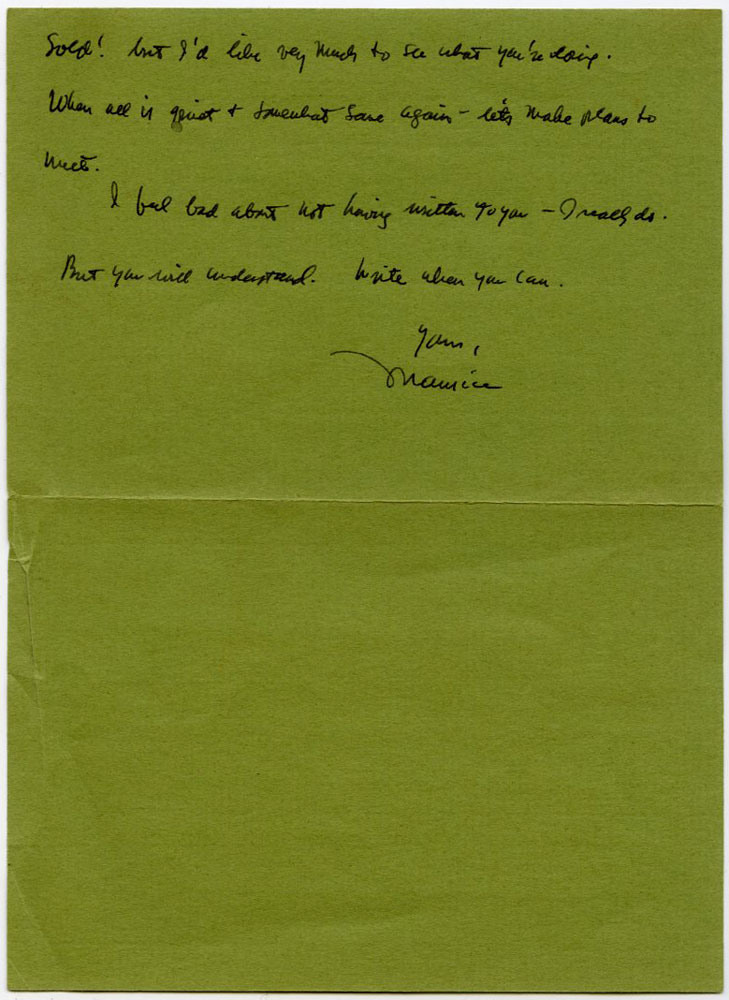 Sold! but I'd like very much to see what you're doing.
When all is quiet + somewhat sane again – let's make plans to
meet.
I feel bad about not having written to you – I really do.
But you will understand. Write when you can.
Yours,
Maurice